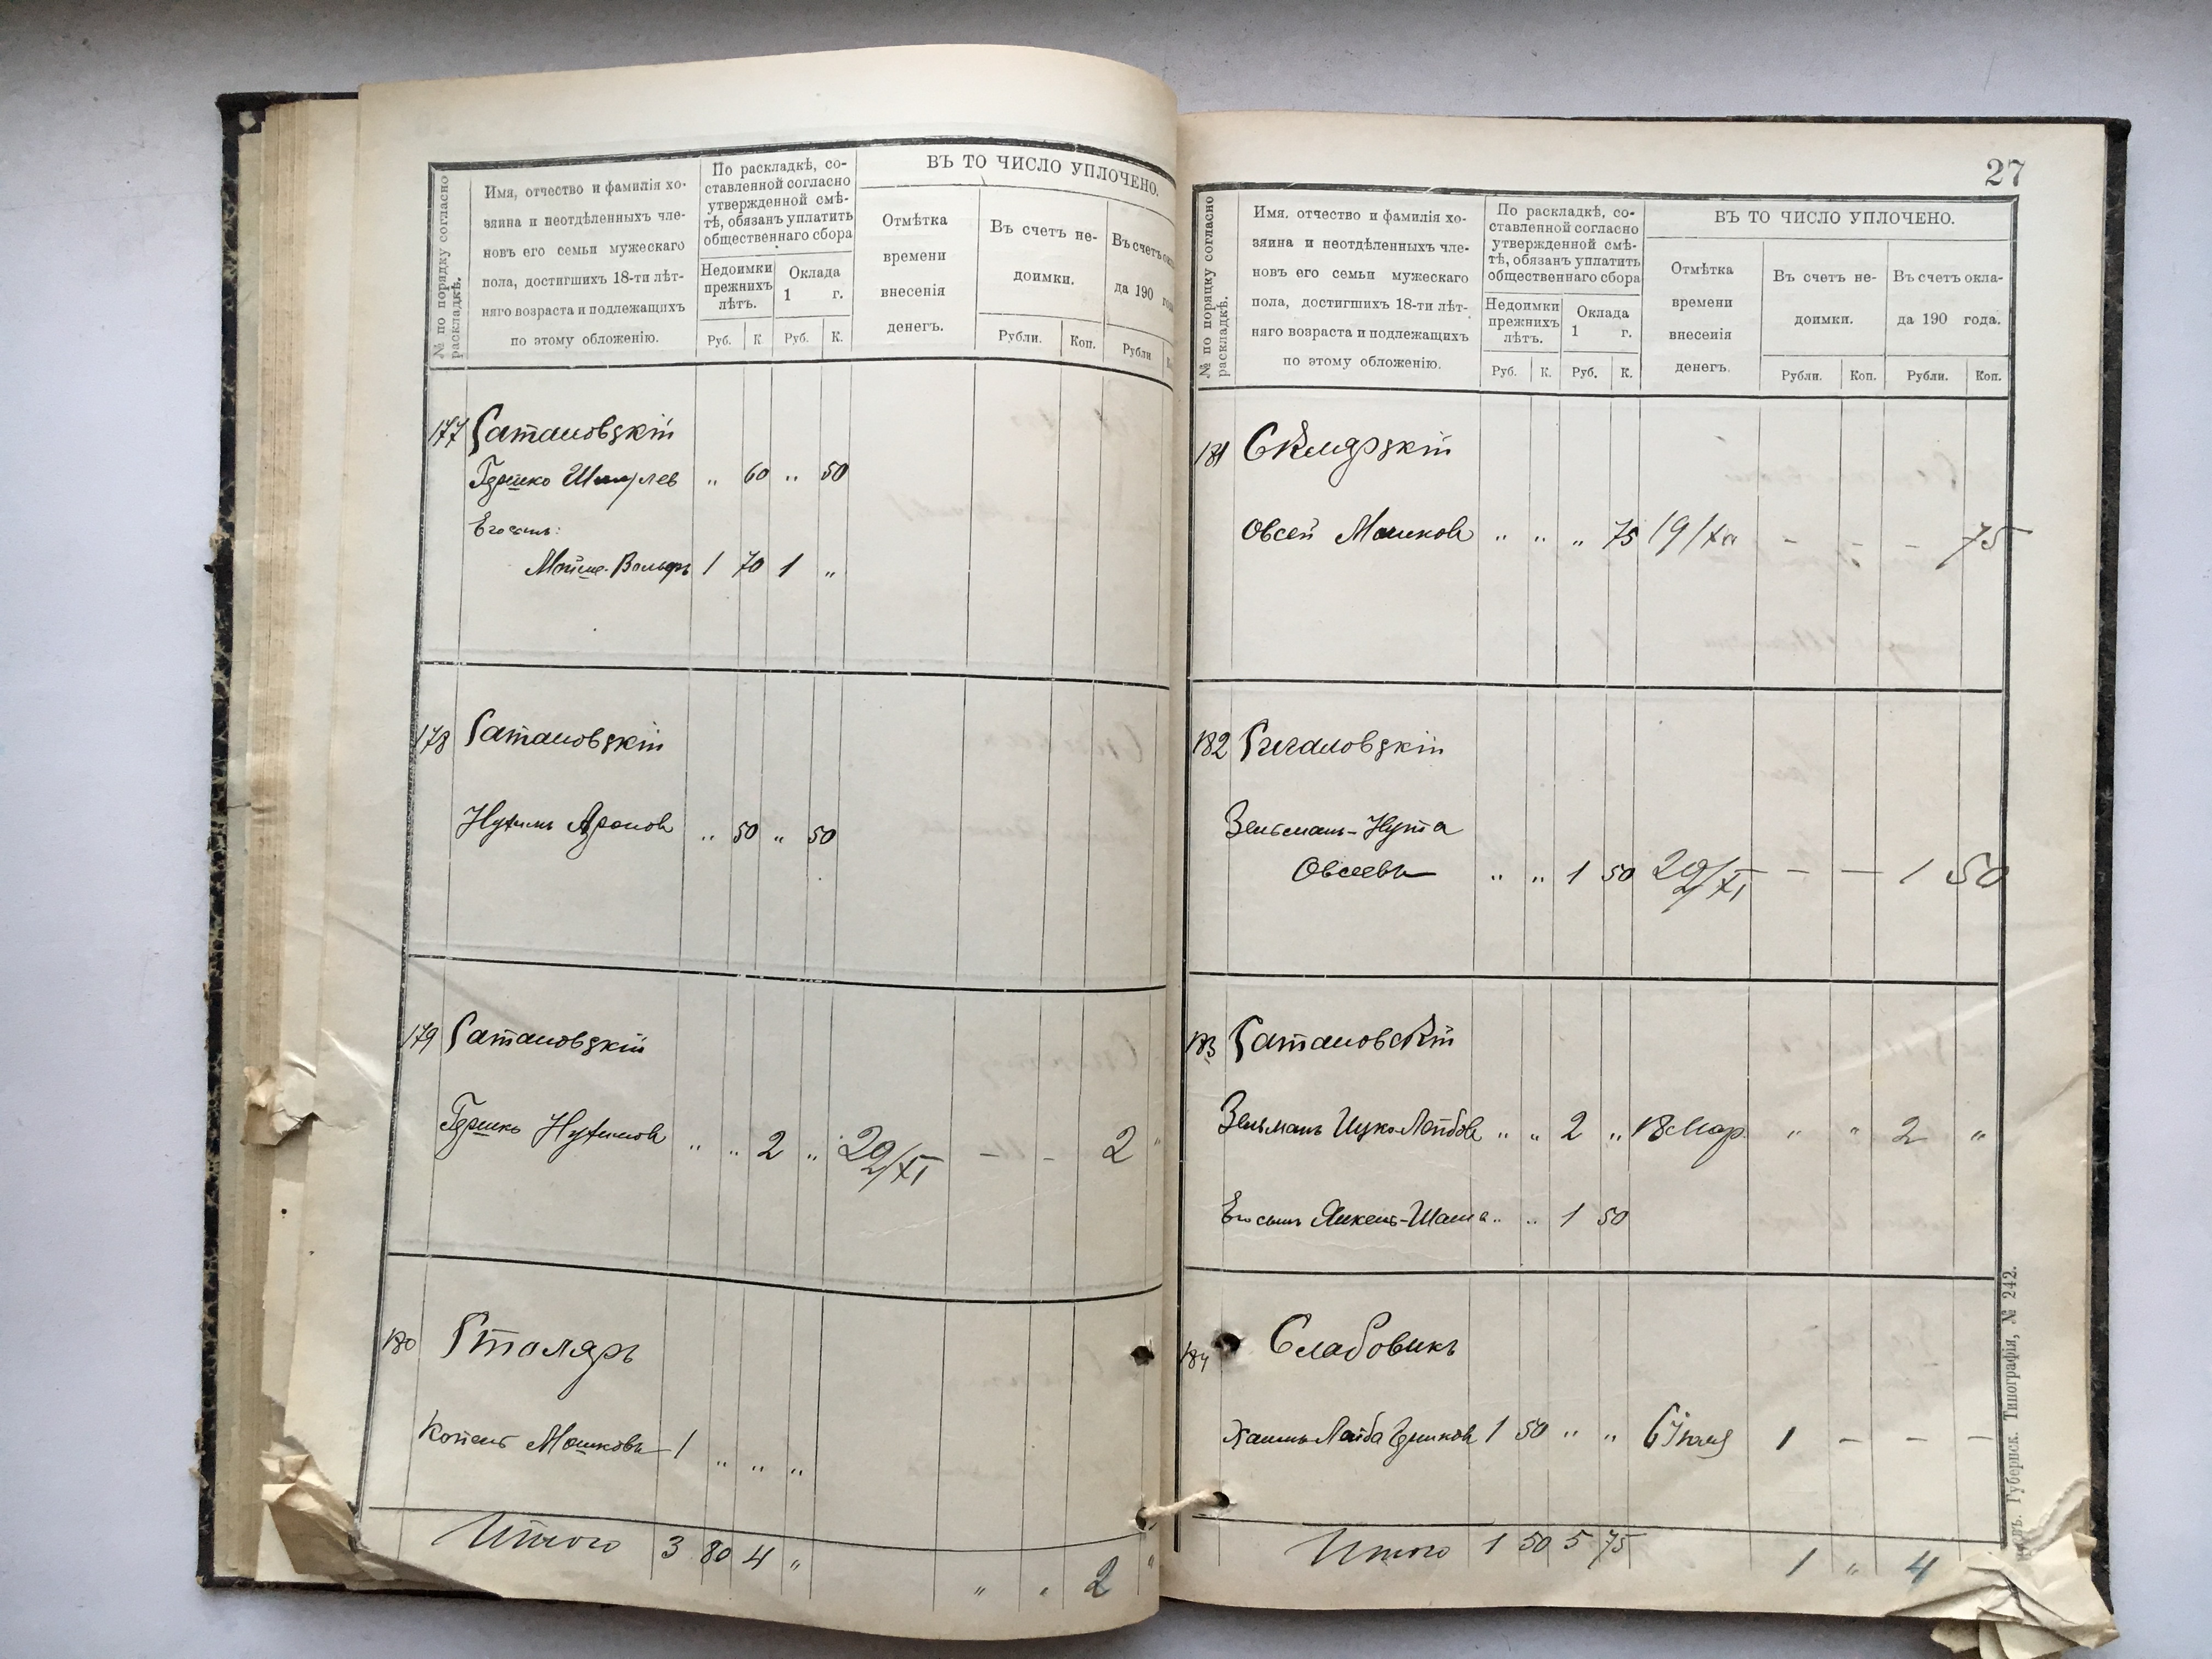 № по порядку согласно раскладкѣ.
Имя, отчество и фамилія хо-
зяина и неотдѣленныхъ чле-
новъ его семьи мужескаго
пола, достигшихъ 18-ти лѣт-
няго возраста и подлежащихъ
по этому обложенію.
По раскладкѣ, со-
ставленной согласно
утвержденной смѣ-
тѣ, обязанъ уплатить
общественнаго сбора
Недоимки
прежнихъ
лѣтъ.
Оклада
1 г.
Руб. К. Руб. К.
ВЪ ТО ЧИСЛО УПЛОЧЕНО.
Отмѣтка
времени
внесенія
денегъ.
Въ счетъ не-
доимки.
Рубли. Коп.
Въ счетъ окла
да 190 года
Рубли
177 Сатановскій
Гершко Шмулев „ 60 „ 50
Его сынъ:
Мойше-Вольфъ 1 70 1 „
178 Сатановскій
Нухимъ Ароновъ „ 50 „ 50
179 Сатановскій
Гершко Нухимовъ „ „ 2 „ 29/XI – – 2 "
180 Столяръ
Копель Мошковъ 1 „ „ „
Итого 3 80 4 „ „ „ 2 "
27
№ по порядку согласно раскладкѣ.
Имя, отчество и фамилія хо-
зяина и неотдѣленныхъ чле-
новъ его семьи мужескаго
пола, достигшихъ 18-ти лѣт-
няго возраста и подлежащихъ
по этому обложенію.
По раскладкѣ, со-
ставленной согласно
утвержденной смѣ-
тѣ, обязанъ уплатить
общественнаго сбора
Недоимки
прежнихъ
лѣтъ.
Оклада
1 г.
Руб. К. Руб. К.
ВЪ ТО ЧИСЛО УПЛОЧЕНО.
Отмѣтка
времени
внесенія
денегъ.
Въ счетъ не-
доимки.
Рубли. Коп.
Въ счетъ окла-
да 190 года.
Рубли. Коп.
181 Склярскій
Овсей Мошковъ „ „ „ 75 – – – 75
182 Сигаловскій
Зельманъ-Нута
Овсеевъ „ „ 1 50 29/XI – – 1 50
183 Сатановскій
Зельманъ Ицко-Лейбовъ „ „ 2 „ 18 Мар. „ „ 2 „
Его сынъ Янкель-Шая „ „ 1 50
184 Слабовикъ
Хаимъ Лейба Гершковъ 1 50 „ „ 6 Іюля 1 – – –
Итого 1 50 5 75 1 „ 4
Губернск. Типографія, № 242.